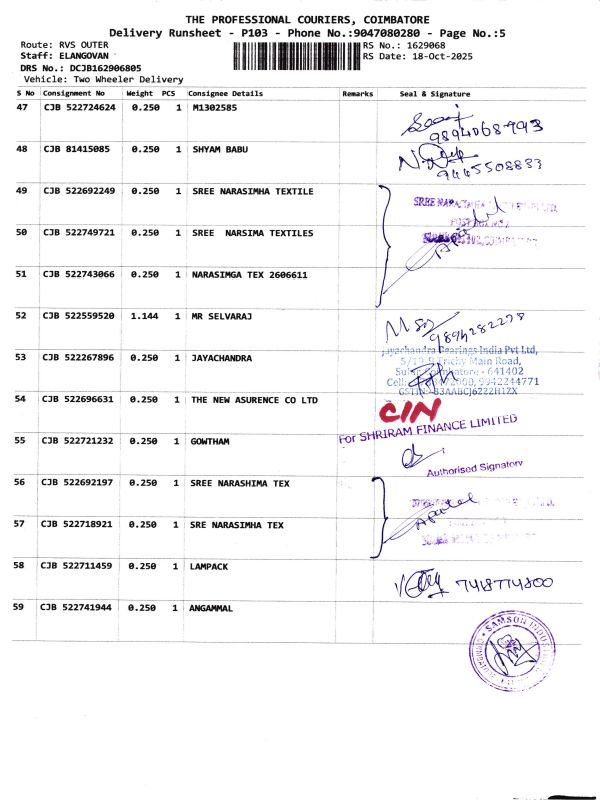 THE PROFESSIONAL COURIERS, COIMBATORE
Delivery Runsheet - P103 - Phone No.:9047080280 - Page No.:5
Route: RVS OUTER RS No.: 1629068
Staff: ELANGOVAN RS Date: 18-Oct-2025
DRS No.: DCJB162906805
Vehicle: Two Wheeler Delivery
S No Consignment No Weight PCS Consignee Details Remarks Seal & Signature
47 CJB 522724624 0.250 1 M1302585
9894068993
48 CJB 81415085 0.250 1 SHYAM BABU
9445508833
49 CJB 522692249 0.250 1 SREE NARASIMHA TEXTILE
50 CJB 522749721 0.250 1 SREE NARSIMA TEXTILES
51 CJB 522743066 0.250 1 NARASIMGA TEX 2606611
52 CJB 522559520 1.144 1 MR SELVARAJ
9894282278
53 CJB 522267896 0.250 1 JAYACHANDRA
Jayachandra Bearings India Pvt Ltd,
Trichy Main Road,
Coimbatore - 641402
Cell: 9942244771
54 CJB 522696631 0.250 1 THE NEW ASURENCE CO LTD CIN
For SHRIRAM FINANCE LIMITED
55 CJB 522721232 0.250 1 GOWTHAM
Authorised Signatory
56 CJB 522692197 0.250 1 SREE NARASHIMA TEX
57 CJB 522718921 0.250 1 SRE NARASIMHA TEX
58 CJB 522711459 0.250 1 LAMPACK
7418774800
59 CJB 522741944 0.250 1 ANGAMMAL
SAMSON